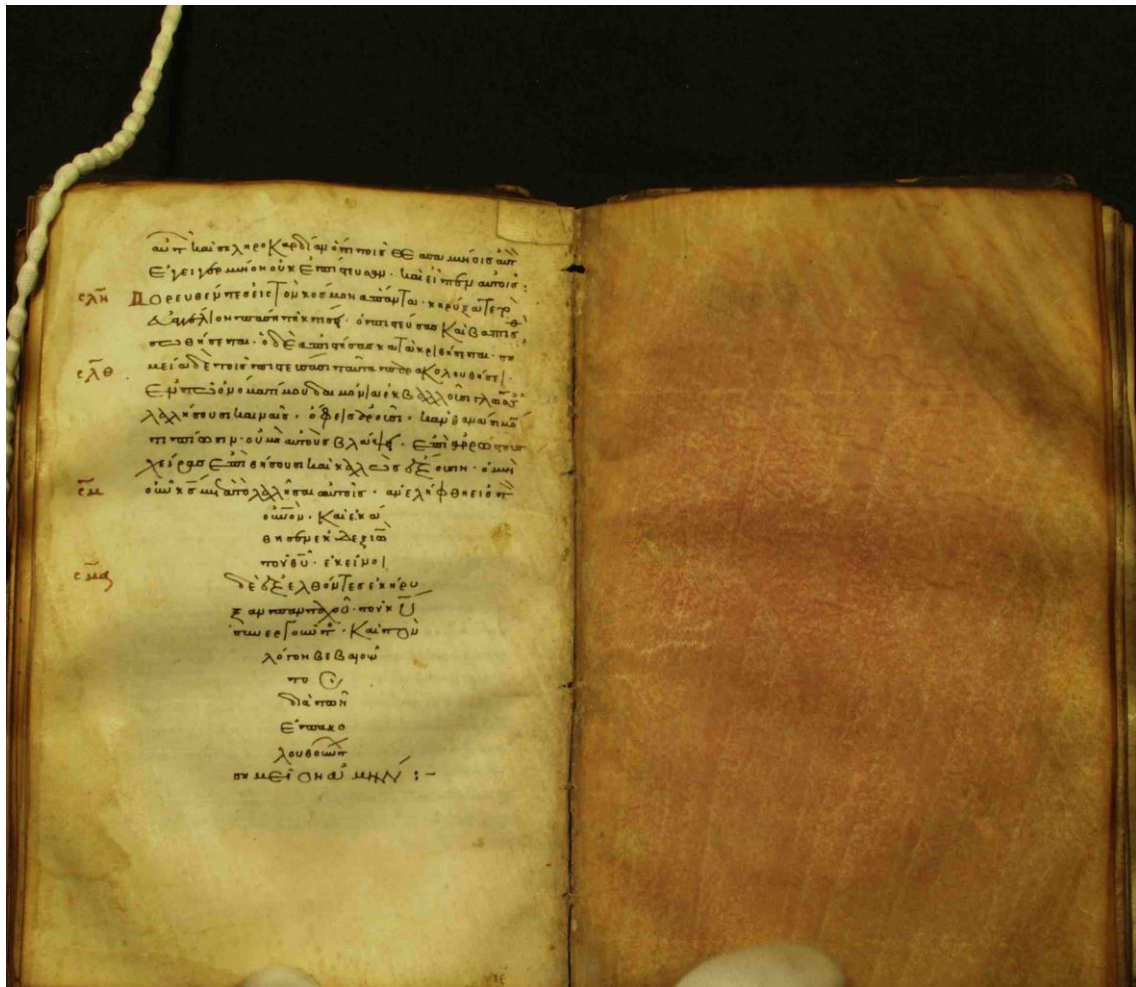 αυτῶν καὶ σκληροκαρδίαν ὅτι τοῖς θεασαμένοις αὐτὸν
ἐγειγερμένον οὐκ ἐπίστευσαν· καὶ εἶπεν αὐτοῖς:
σλη Πορευθέντες εἰς τὸν κόσμον ἅπαντα· κηρύξατε τὸ
εὐαγγέλιον πάσῃ τῇ κτίσει· ὁ πιστεύσας Καὶ βαπτισθ
σωθήσεται· ὁ δὲ ἀπιστήσας κατακριθήσεται· ση
σλθ μεῖα δὲ τοῖς πιστεύσασι ταῦτα παρακολουθήσει·
Ἐν τῷ ὀνόματί μου δαιμόνια ἐκβάλλουσι γλώσσαις
λαλήσουσι καιναῖς· ὄφεις ἀροῦσι· κἂν θανάσιμόν
τι πίωσιν· οὐ μὴ αὐτοὺς βλάψει· Ἐπὶ ἀρρώστους
χεῖρας ἐπιθήσουσι καὶ καλῶς ἕξουσιν· ὁ μὲν
σμ οὖν κ̅ς̅ μετὰ τὸ λαλῆσαι αὐτοῖς· ἀνελήφθη εἰς τὸν
οὐνον· Καὶ ἐκά
θησεν ἐκ δεξιῶν
τοῦ θ̅υ̅· ἐκεῖνοι
σμα δὲ ἐξελθόντες ἐκήρυ
ξαν πανταχοῦ· τοῦ κ̅υ̅
συνεργοῦντος· Καὶ τὸν
λόγον βεβαιοῦν
τος
διὰ τῶν
Ἐπακο
λουθούντων
σημείον ἀμήν:-